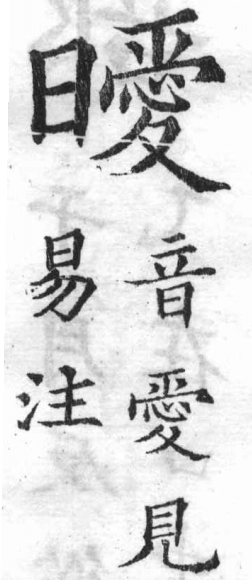 曖
音愛見
易注